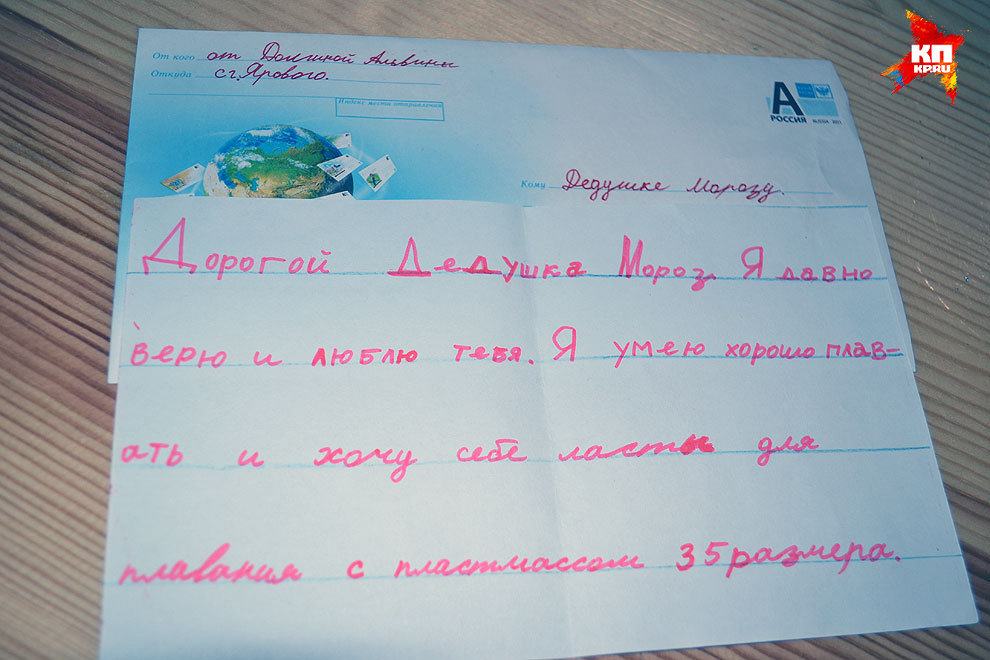 КП
KP.RU
От кого от Долгиной Альвины
Откуда с г. Ярового.
Индекс места отправления
А
РОССИЯ RUSSIA 2011
Кому Дедушке Морозу.
Дорогой Дедушка Мороз. Я давно
верю и люблю тебя. Я умею хорошо плав-
ать и хочу себе ласты для
плавания с пластмассом 35 размера.